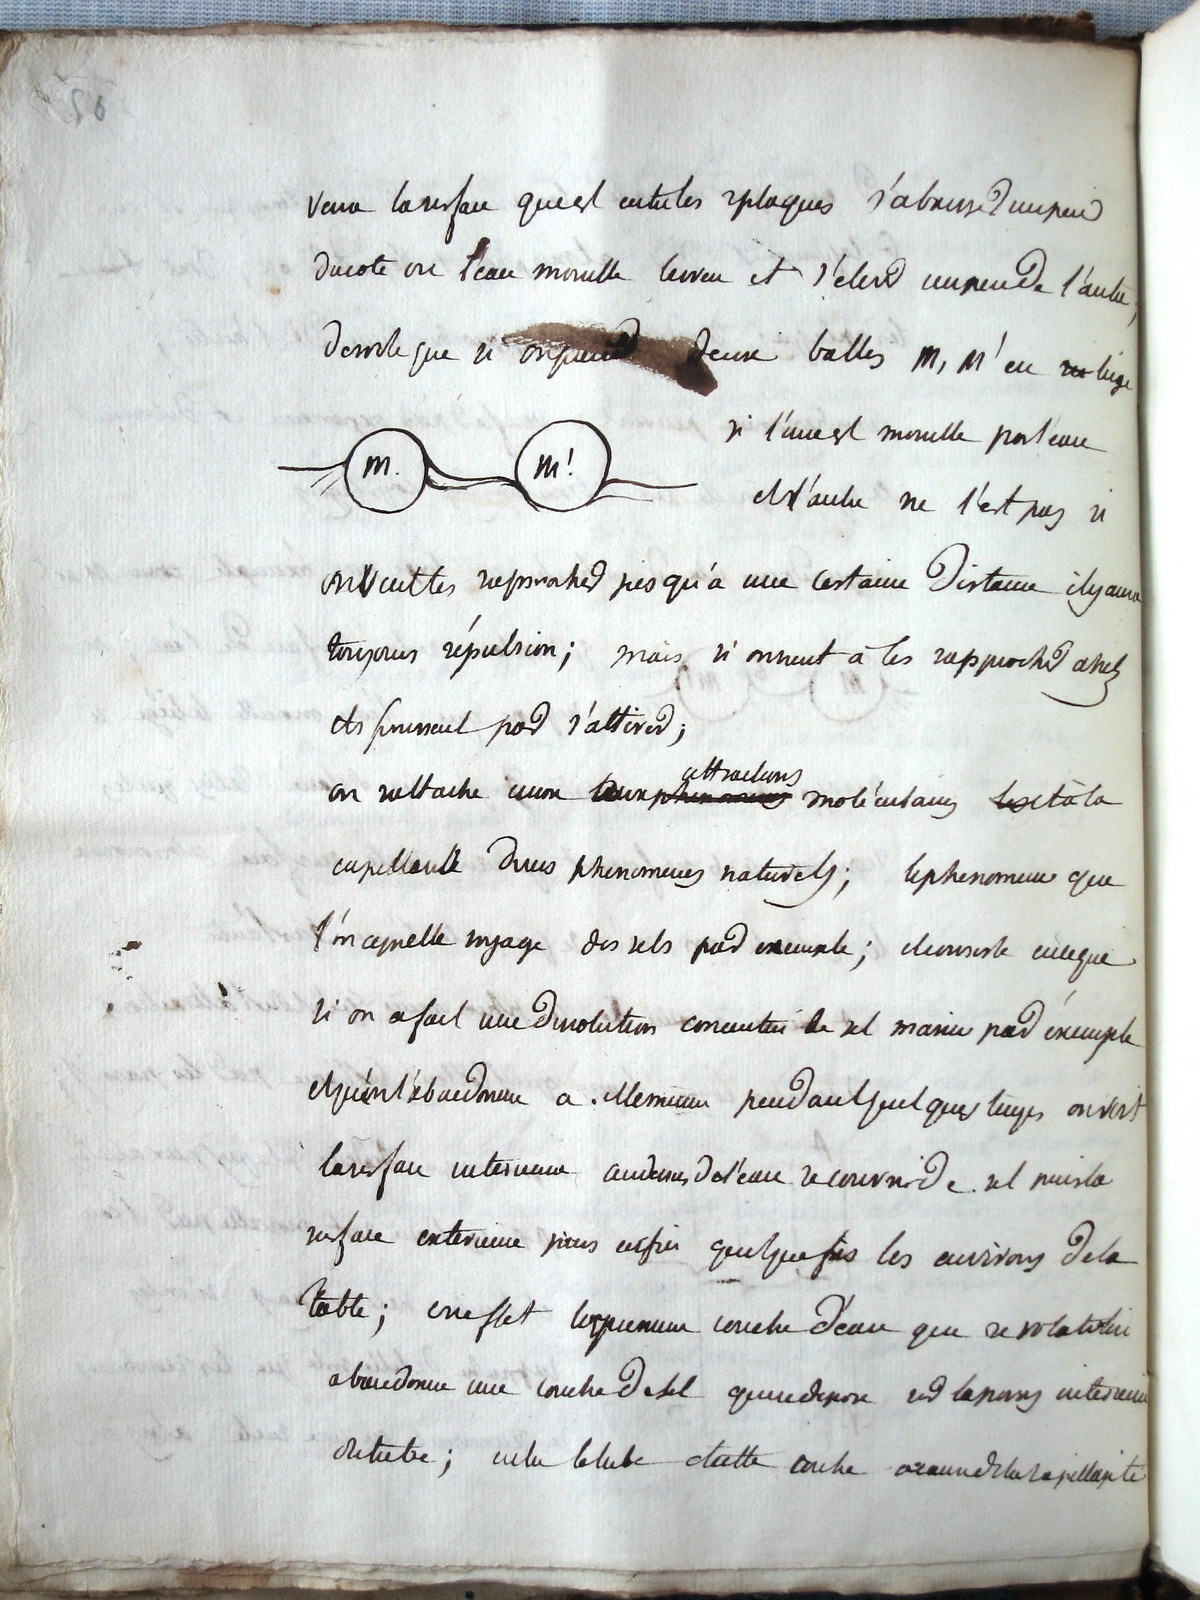 verra la surface qui est entre les 2 plaques s'abaisser d'un peu
du coté ou l'eau mouille le verre et s'elever un peu de l'autre;
de sorte que si on prend deux balles m, m' en liége
si l'une est mouillé par l'eau
m. m'.
et l'autre ne l'est pas si
on veut les rapprocher jusqu'a une certaine distance il y aura
toujours répulsion; mais si on vient à les rapprocher assez
ils finissent par s'attirer;
on rattache aux attractions moléculaires et à la
capillarité divers phenomenes naturels; le phenomene que
l'on appelle voyage des sels par exemple; il consiste en ce que
si on a fait une dissolution concentrée de sel marin par éxemple
et qu'on l'abandonne a elle meme pendant quelques temps on voit
la surface interieure au dessus de l'eau se couvrir de sel puis la
surface exterieure puis enfin quelque fois les environs de la
table; en effet la premiere couche d'eau qui se volatilise
abandonne une couche de sel qui se depose sur la paroi interieure
du tube; entre le tube et cette couche a cause de la capillarité